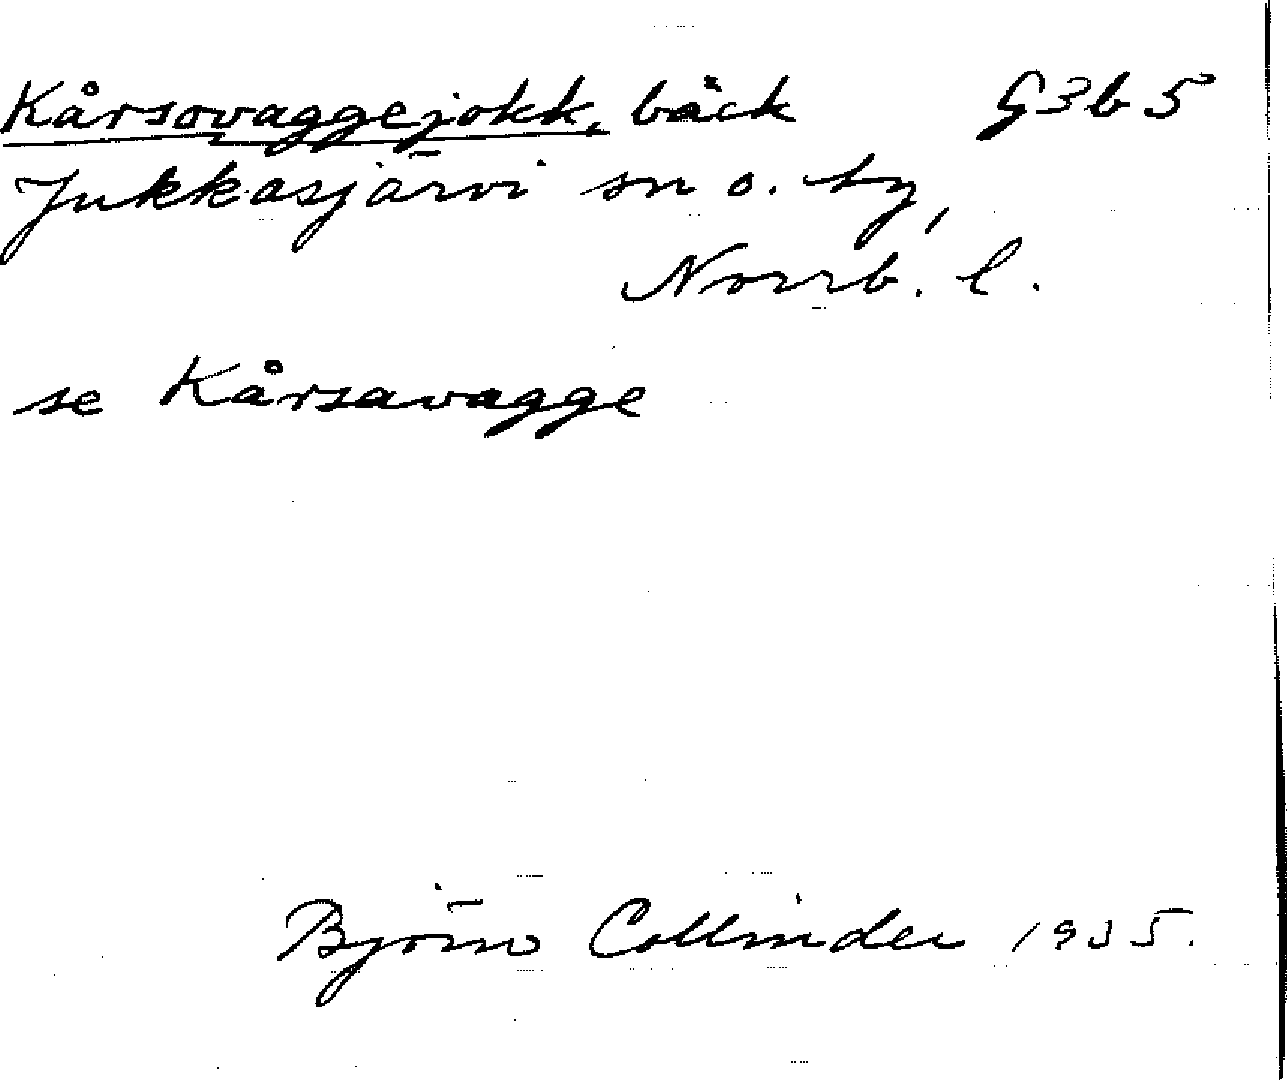 Kårsovaggejokk, bäck G3b5
Jukkasjärvi sn o. ty,
Norrb. l.
se Kårsavagge
Björn Collinder 1935.